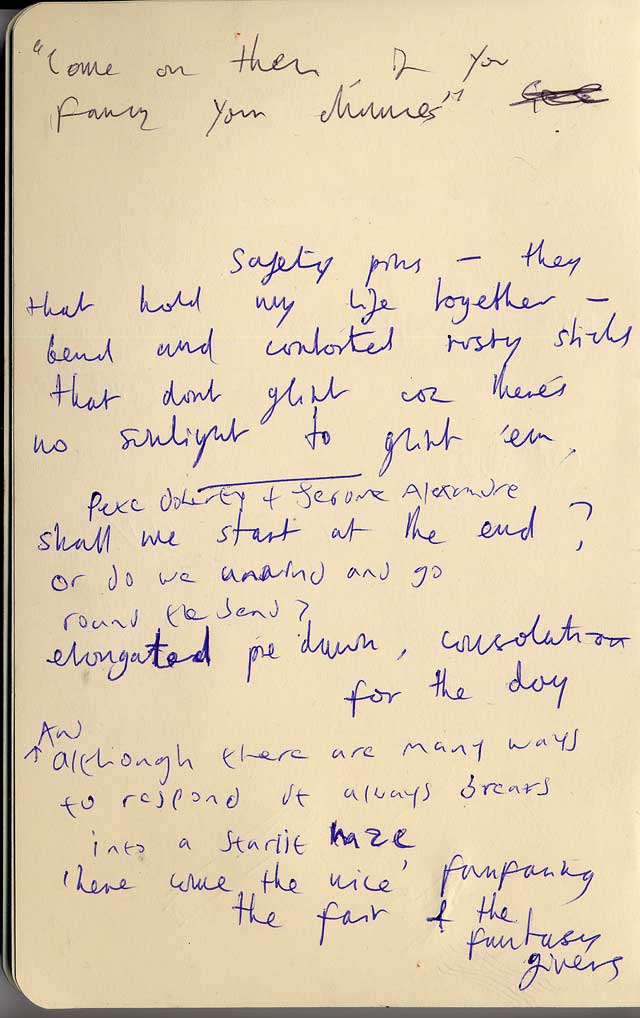 "Come on then, if you
fancy your chances"
Safety pins – they
that hold my life together –
bend and contorted rusty sticks
that dont glint coz theres
no sunlight to glint 'em,
Pete Doherty + Jerome Alexandre
shall we start at the end ?
or do we unwind and go
round the bend?
elongated pre dawn, consolation
for the day
And
↑ although there are many ways
to respond it always breaks
into a starlit haze
'here come the nice' fanfaring
the fair & the
fantasy
givers